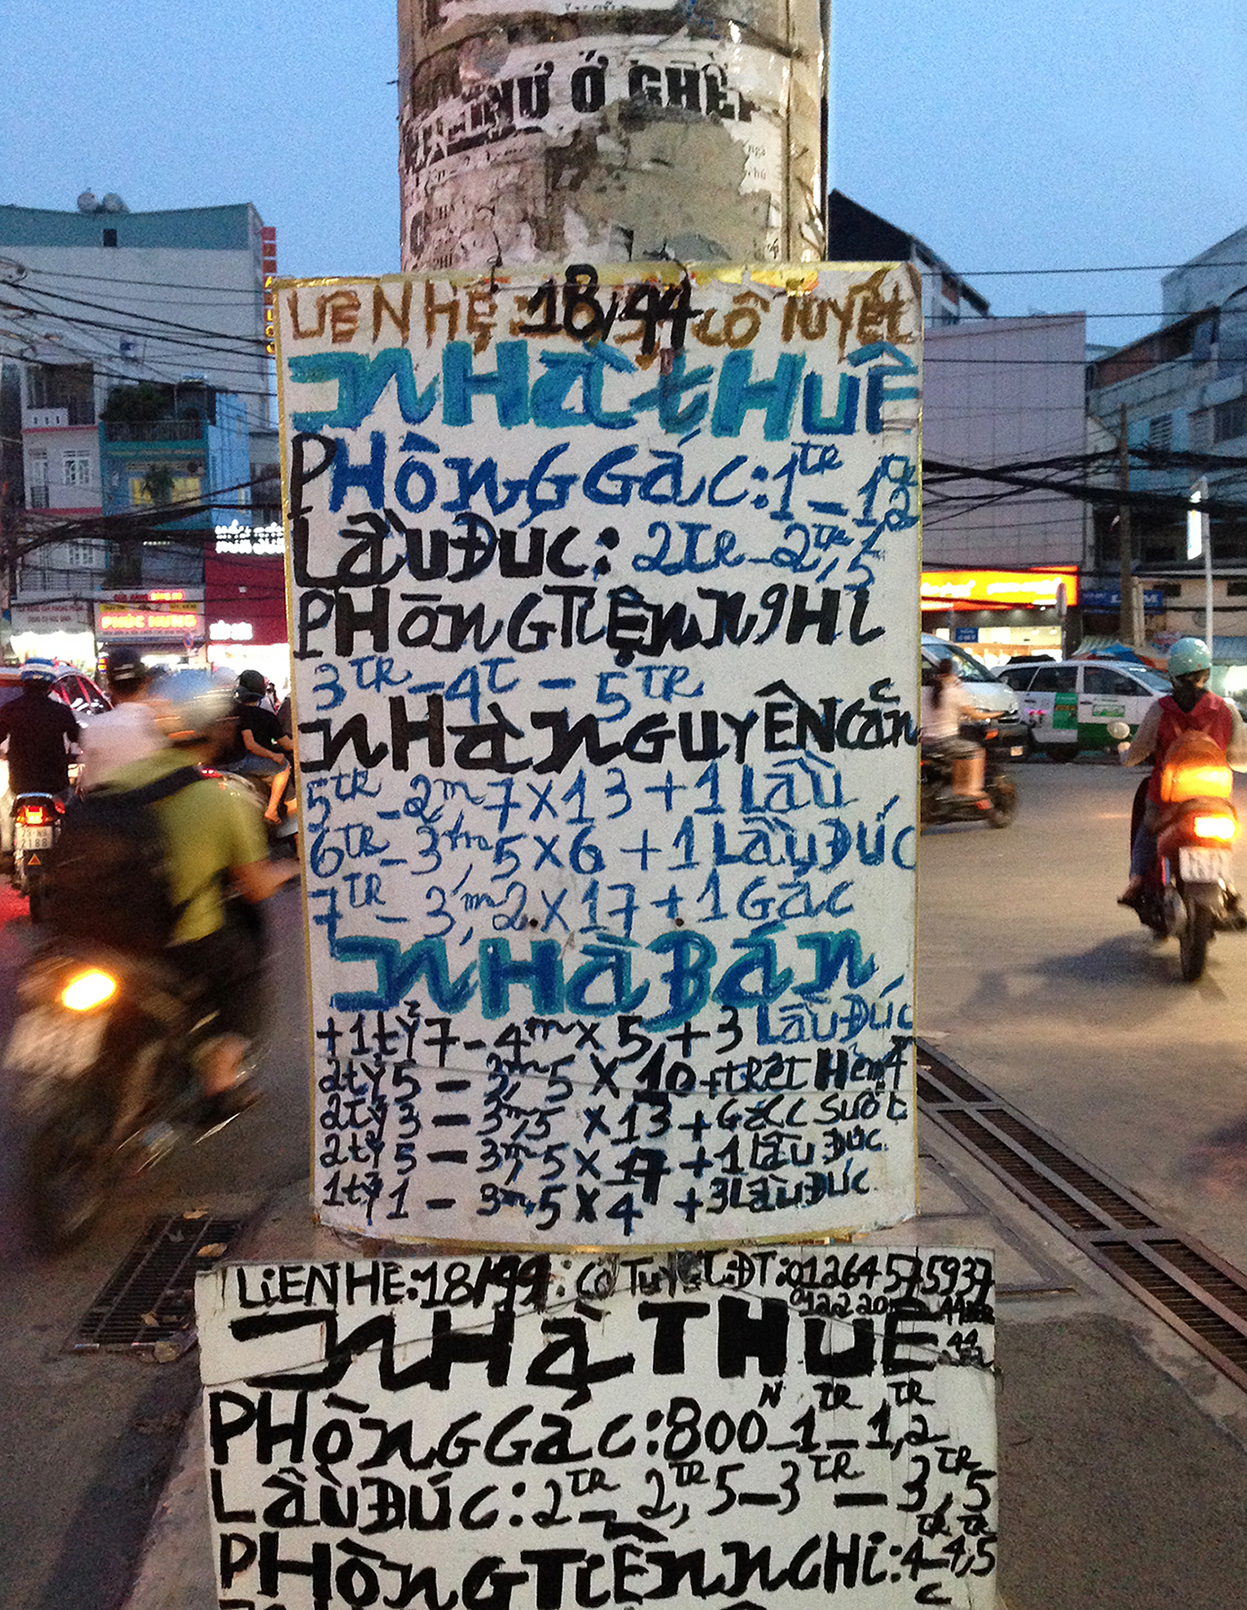 NỮ Ở GHÉP
LIÊN HỆ: 18/44 CÔ TUYẾT
NHÀ THUÊ
PHÒNG GÁC: 1TR – 1,2TR
LẦU ĐÚC: 2TR – 2TR,5
PHÒNG TIỆN NGHI
3TR – 4T – 5TR
NHÀ NGUYÊN CĂN
5TR – 2m7 X 13 + 1 LẦU
6TR – 3m,5 X 6 + 1 LẦU ĐÚC
7TR – 3,m2 X 17 + 1 GÁC
NHÀ BÁN
+ 1tỷ7 – 4m X 5 + 3 LẦU ĐÚC
2tỷ5 – 3m,5 X 10 + TRỆT HẺM 4
2tỷ3 – 3m,5 X 13 + GÁC SUỐT
2tỷ5 – 3m,5 X 17 + 1 LẦU ĐÚC
1tỷ1 – 3m,5 X 4 + 3 LẦU ĐÚC
PHÚC HƯNG
LIÊN HỆ: 18/44: CÔ TUYẾT ĐT: 01264575937
NHÀ THUÊ
PHÒNG GÁC: 800N – 1TR – 1,2TR
LẦU ĐÚC: 2TR – 2TR,5 – 3TR – 3TR,5
PHÒNG TIỀN NGHI: 4TR – 4TR,5